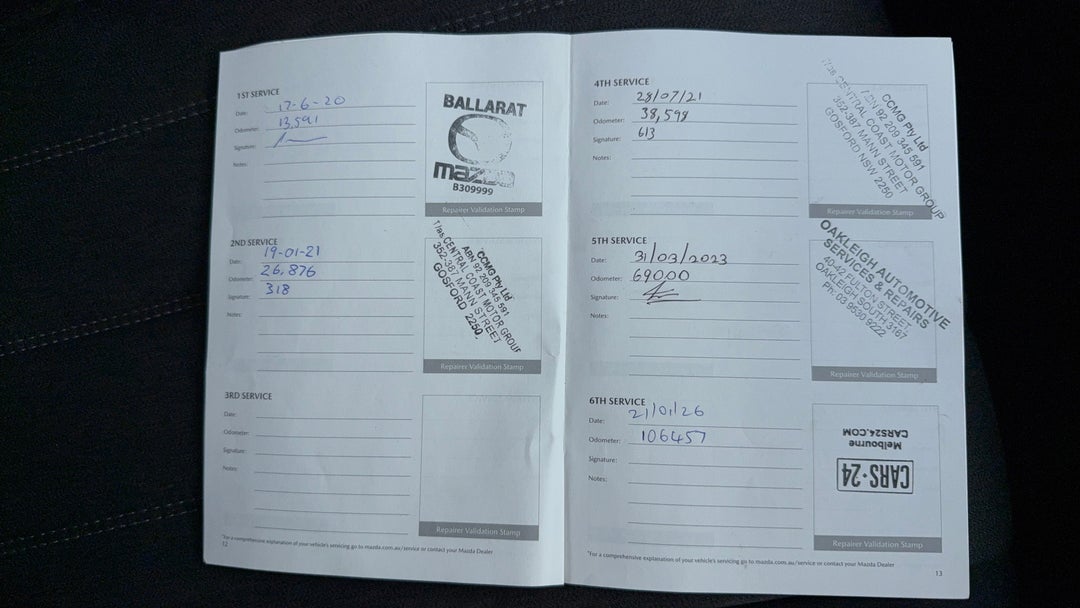 1ST SERVICE
Date: 17-6-20
Odometer: 13,591
Signature:
Notes:
BALLARAT
mazda
B309999
Repairer Validation Stamp
2ND SERVICE
Date: 19-01-21
Odometer: 26,876
Signature: 318
Notes:
CCMG Pty Ltd
ABN 92 209 345 591
T/as CENTRAL COAST MOTOR GROUP
352-387 MANN STREET
GOSFORD 2250
Repairer Validation Stamp
3RD SERVICE
Date:
Odometer:
Signature:
Notes:
Repairer Validation Stamp
*For a comprehensive explanation of your vehicle's servicing go to mazda.com.au/service or contact your Mazda Dealer
12
4TH SERVICE
Date: 28/07/21
Odometer: 38,598
Signature: 613
Notes:
CCMG Pty Ltd
ABN 92 209 345 591
T/as CENTRAL COAST MOTOR GROUP
352-387 MANN STREET
GOSFORD NSW 2250
Repairer Validation Stamp
5TH SERVICE
Date: 31/03/2023
Odometer: 69000
Signature:
Notes:
OAKLEIGH AUTOMOTIVE
SERVICES & REPAIRS
40-42 FULTON STREET
OAKLEIGH SOUTH 3167
PH: 03 8530 9222
Repairer Validation Stamp
6TH SERVICE
Date: 21/01/26
Odometer: 106457
Signature:
Notes:
CARS·24
Melbourne
CARS24.COM
Repairer Validation Stamp
*For a comprehensive explanation of your vehicle's servicing go to mazda.com.au/service or contact your Mazda Dealer
13